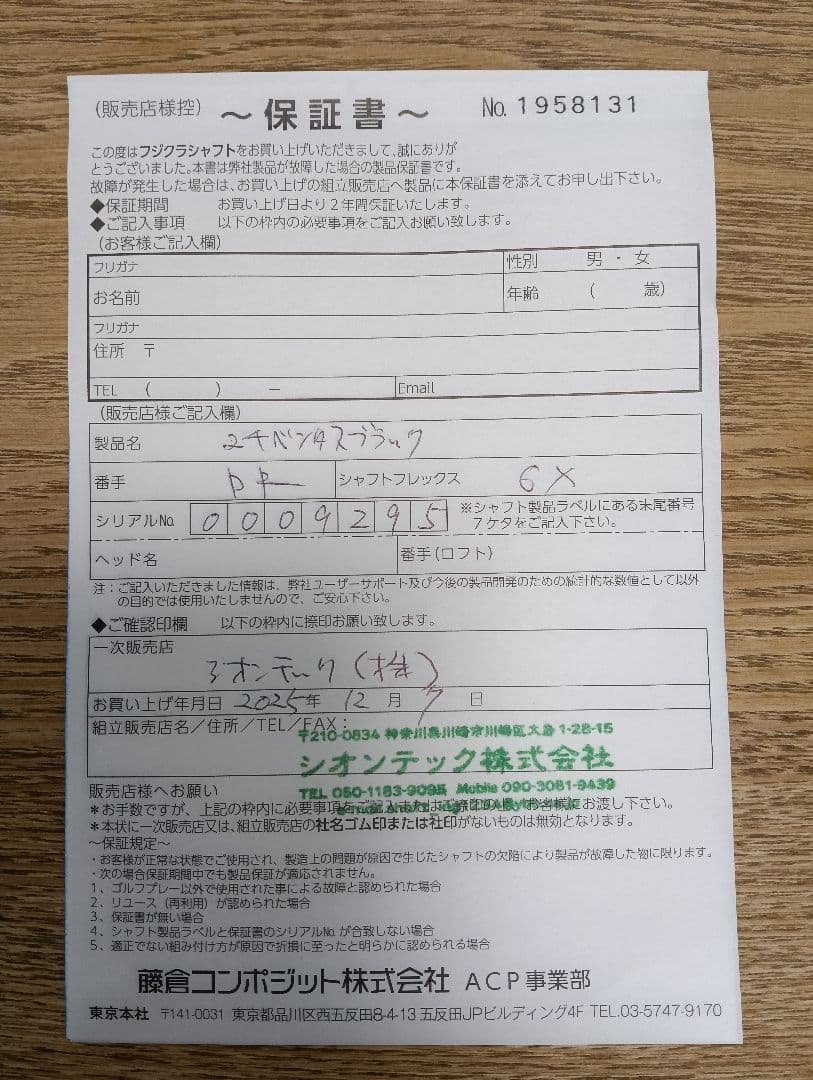 (販売店様控) ～保証書～ No. 1958131
この度はフジクラシャフトをお買い上げいただきまして、誠にありが
とうございました。本書は弊社製品が故障した場合の製品保証書です。
故障が発生した場合は、お買い上げの組立販売店へ製品に本保証書を添えてお申し出下さい。
◆保証期間 お買い上げ日より2年間保証いたします。
◆ご記入事項 以下の枠内の必要事項をご記入お願い致します。
(お客様ご記入欄)
フリガナ 性別 男・女
お名前 年齢 ( 歳)
フリガナ
住所 〒
TEL ( ) － Email
(販売店様ご記入欄)
製品名 24ベンタスブラック
番手 DR シャフトフレックス 6X
シリアルNo. 0009295 ※シャフト製品ラベルにある末尾番号
7ケタをご記入下さい。
ヘッド名 番手(ロフト)
注：ご記入いただきました情報は、弊社ユーザーサポート及び今後の製品開発のための統計的な数値として以外
の目的では使用いたしませんので、ご安心下さい。
◆ご確認印欄 以下の枠内に捺印お願い致します。
一次販売店
シオンテック(株)
お買い上げ年月日 2025年 12月 7日
組立販売店名／住所／TEL／FAX：
〒210-0834 神奈川県川崎市川崎区大島1-28-15
シオンテック株式会社
TEL 050-1183-9095 Mobile 090-3081-9439
販売店様へお願い
＊お手数ですが、上記の枠内に必要事項をご記入またはご捺印の上、お客様にお渡し下さい。
＊本状に一次販売店又は、組立販売店の社名ゴム印または社印がないものは無効となります。
～保証規定～
・お客様が正常な状態でご使用され、製造上の問題が原因で生じたシャフトの欠陥により製品が故障した物に限ります。
・次の場合保証期間中でも製品保証が適応されません。
1、ゴルフプレー以外で使用された事による故障と認められた場合
2、リユース（再利用）が認められた場合
3、保証書が無い場合
4、シャフト製品ラベルと保証書のシリアルNo.が合致しない場合
5、適正でない組み付け方が原因で折損に至ったと明らかに認められる場合
藤倉コンポジット株式会社 ACP事業部
東京本社 〒141-0031 東京都品川区西五反田8-4-13 五反田JPビルディング4F TEL.03-5747-9170